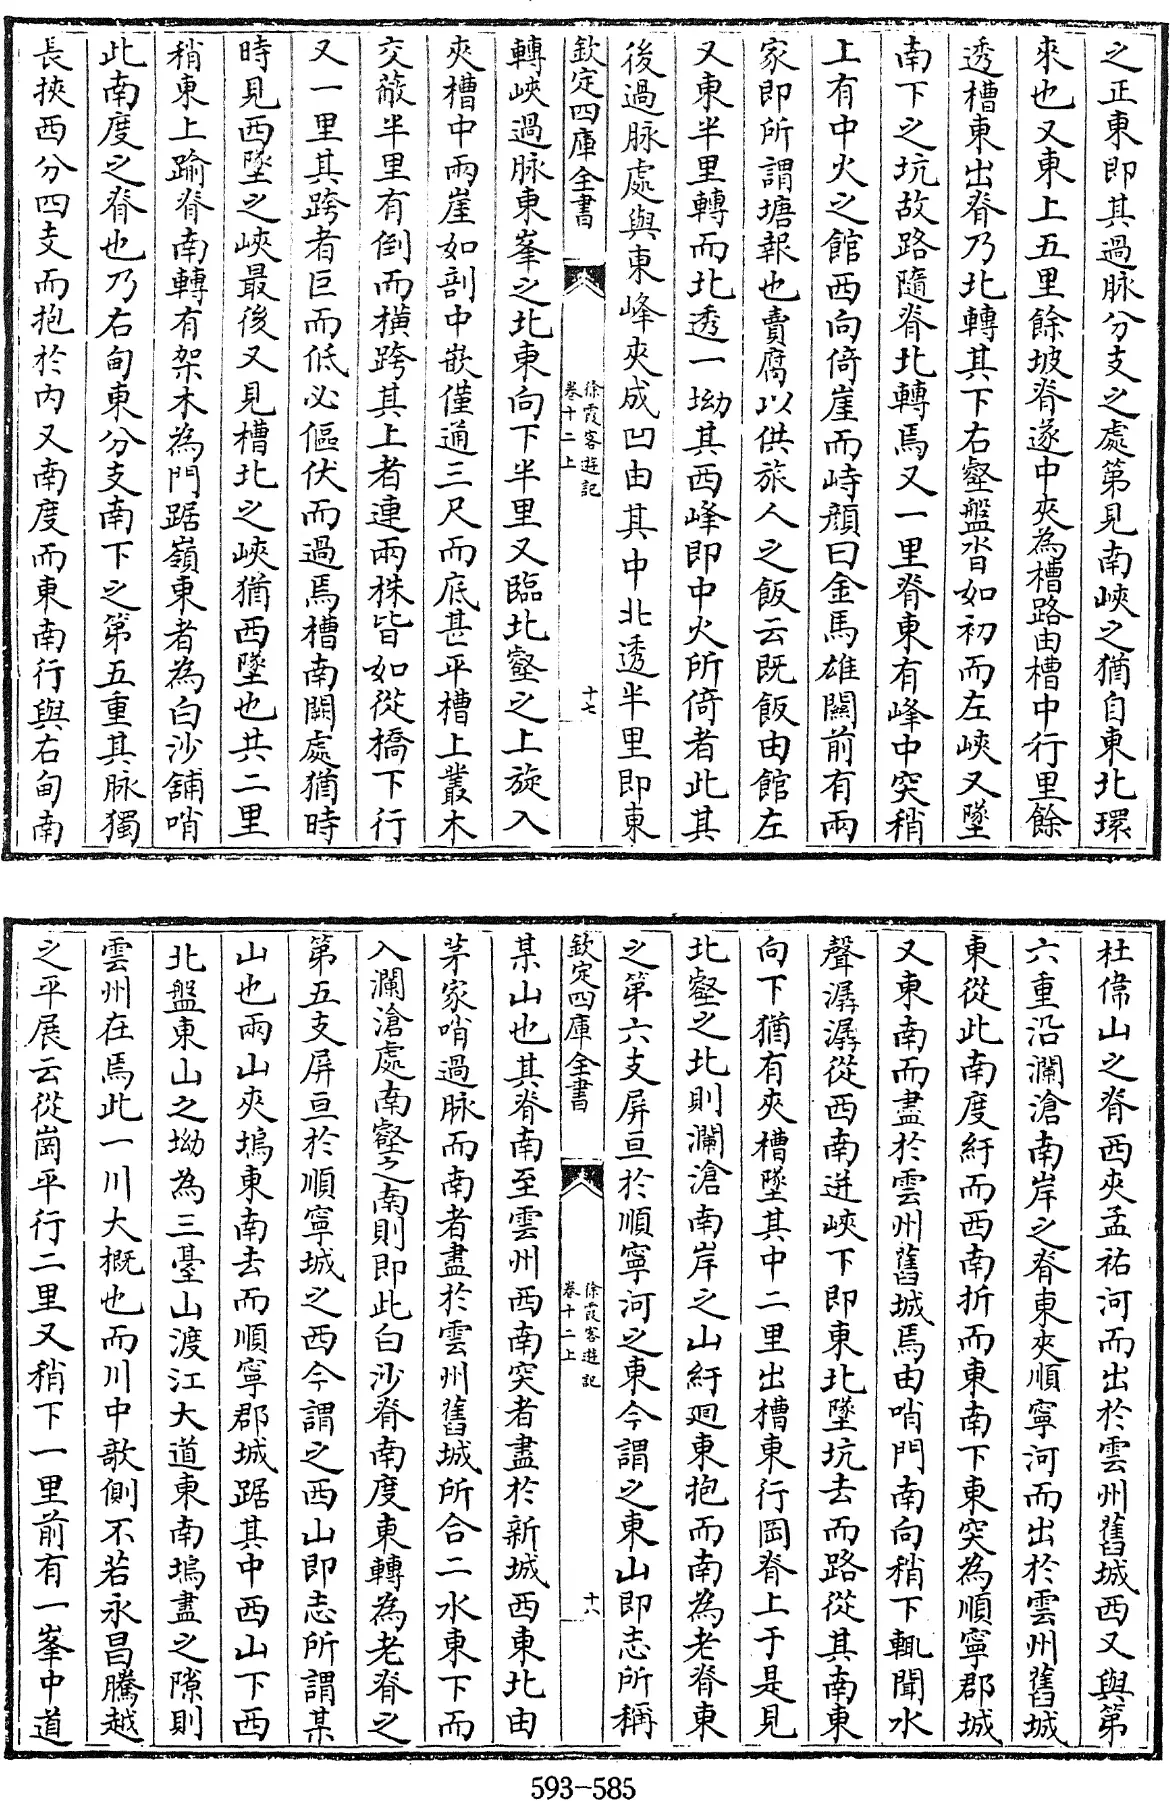 之正東即其過脉分支之處第見南峽之猶自東北環
來也又東上五里餘坡脊遂中夾為槽路由槽中行里餘
透槽東出脊乃北轉其下右壑盤沓如初而左峽又墜
南下之坑故路隨脊北轉焉又一里脊東有峰中突稍
上有中火之館西向倚崖而峙顔曰金馬雄關前有兩
家即所謂塘報也賣腐以供旅人之飯云既飯由館左
又東半里轉而北透一坳其西峰即中火所倚者此其
後過脉處與東峰夾成凹由其中北透半里即東
欽定四庫全書
徐霞客遊記
卷十二上
十七
轉峽過脉東峯之北東向下半里又臨北壑之上旋入
夾槽中兩崖如剖中嵌僅通三尺而底甚平槽上叢木
交蔽半里有倒而横跨其上者連兩株皆如從橋下行
又一里其跨者巨而低必傴伏而過焉槽南闢處猶時
時見西墜之峽最後又見槽北之峽猶西墜也共二里
稍東上踰脊南轉有架木為門踞嶺東者為白沙舖哨
此南度之脊也乃右甸東分支南下之第五重其脉獨
長挾西分四支而抱於内又南度而東南行與右甸南
杜偉山之脊西夾孟祐河而出於雲州舊城西又與第
六重沿瀾滄南岸之脊東夾順寧河而出於雲州舊城
東從此南度紆而西南折而東南下東突為順寧郡城
又東南而盡於雲州舊城焉由哨門南向稍下輒聞水
聲潺潺從西南迸峽下即東北墜坑去而路從其南東
向下猶有夾槽墜其中二里出槽東行岡脊上于是見
北壑之北則瀾滄南岸之山紆廻東抱而南為老脊東
之第六支屏亘於順寧河之東今謂之東山即志所稱
欽定四庫全書
徐霞客遊記
卷十二上
十八
某山也其脊南至雲州西南突者盡於新城西東北由
茅家哨過脉而南者盡於雲州舊城所合二水東下而
入瀾滄處南壑之南則即此白沙脊南度東轉為老脊之
第五支屏亘於順寧城之西今謂之西山即志所謂某
山也兩山夾塢東南去而順寧郡城踞其中西山下西
北盤東山之坳為三臺山渡江大道東南塢盡之隙則
雲州在焉此一川大概也而川中欹側不若永昌騰越
之平展云從崗平行二里又稍下一里前有一峯中道
593-585